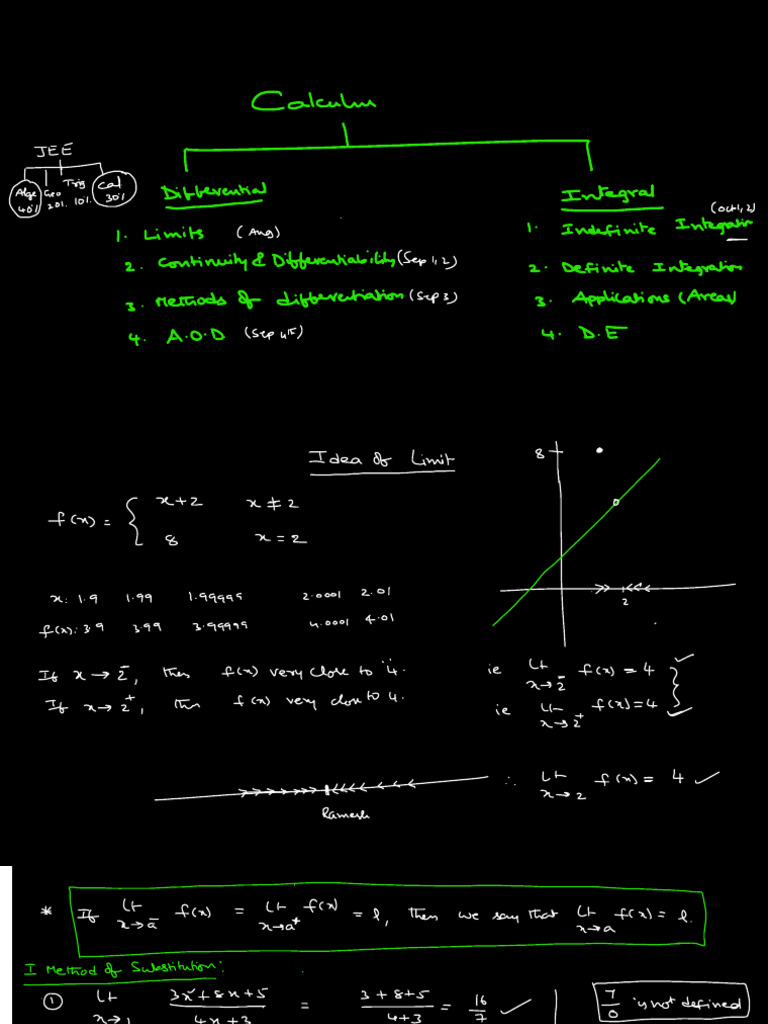 Calculus
JEE
Alge 40%
Geo 20%
Trig 10%
Cal 30%
Differential
1. Limits (Aug)
2. Continuity & Differentiability (Sep 1, 2)
3. Methods of differentiation (Sep 3)
4. A.O.D (Sep 4th)
Integral
(Oct 1, 2)
1. Indefinite Integration
2. Definite Integration
3. Applications (Areas)
4. D.E
Idea of Limit
f(x) = { x+2 x ≠ 2
8 x = 2
8
2
x: 1.9 1.99 1.99999 2.0001 2.01
f(x): 3.9 3.99 3.99999 4.0001 4.01
If x → 2⁻, then f(x) very close to 4.
If x → 2⁺, then f(x) very close to 4.
ie Lt x→2⁻ f(x) = 4
ie Lt x→2⁺ f(x) = 4
∴ Lt x→2 f(x) = 4
Ramesh
* If Lt x→a⁻ f(x) = Lt x→a⁺ f(x) = l, then we say that Lt x→a f(x) = l.
I Method of Substitution:
① Lt x→1 3x²+8x+5 / 4x+3 = 3+8+5 / 4+3 = 16/7
7/0 is not defined